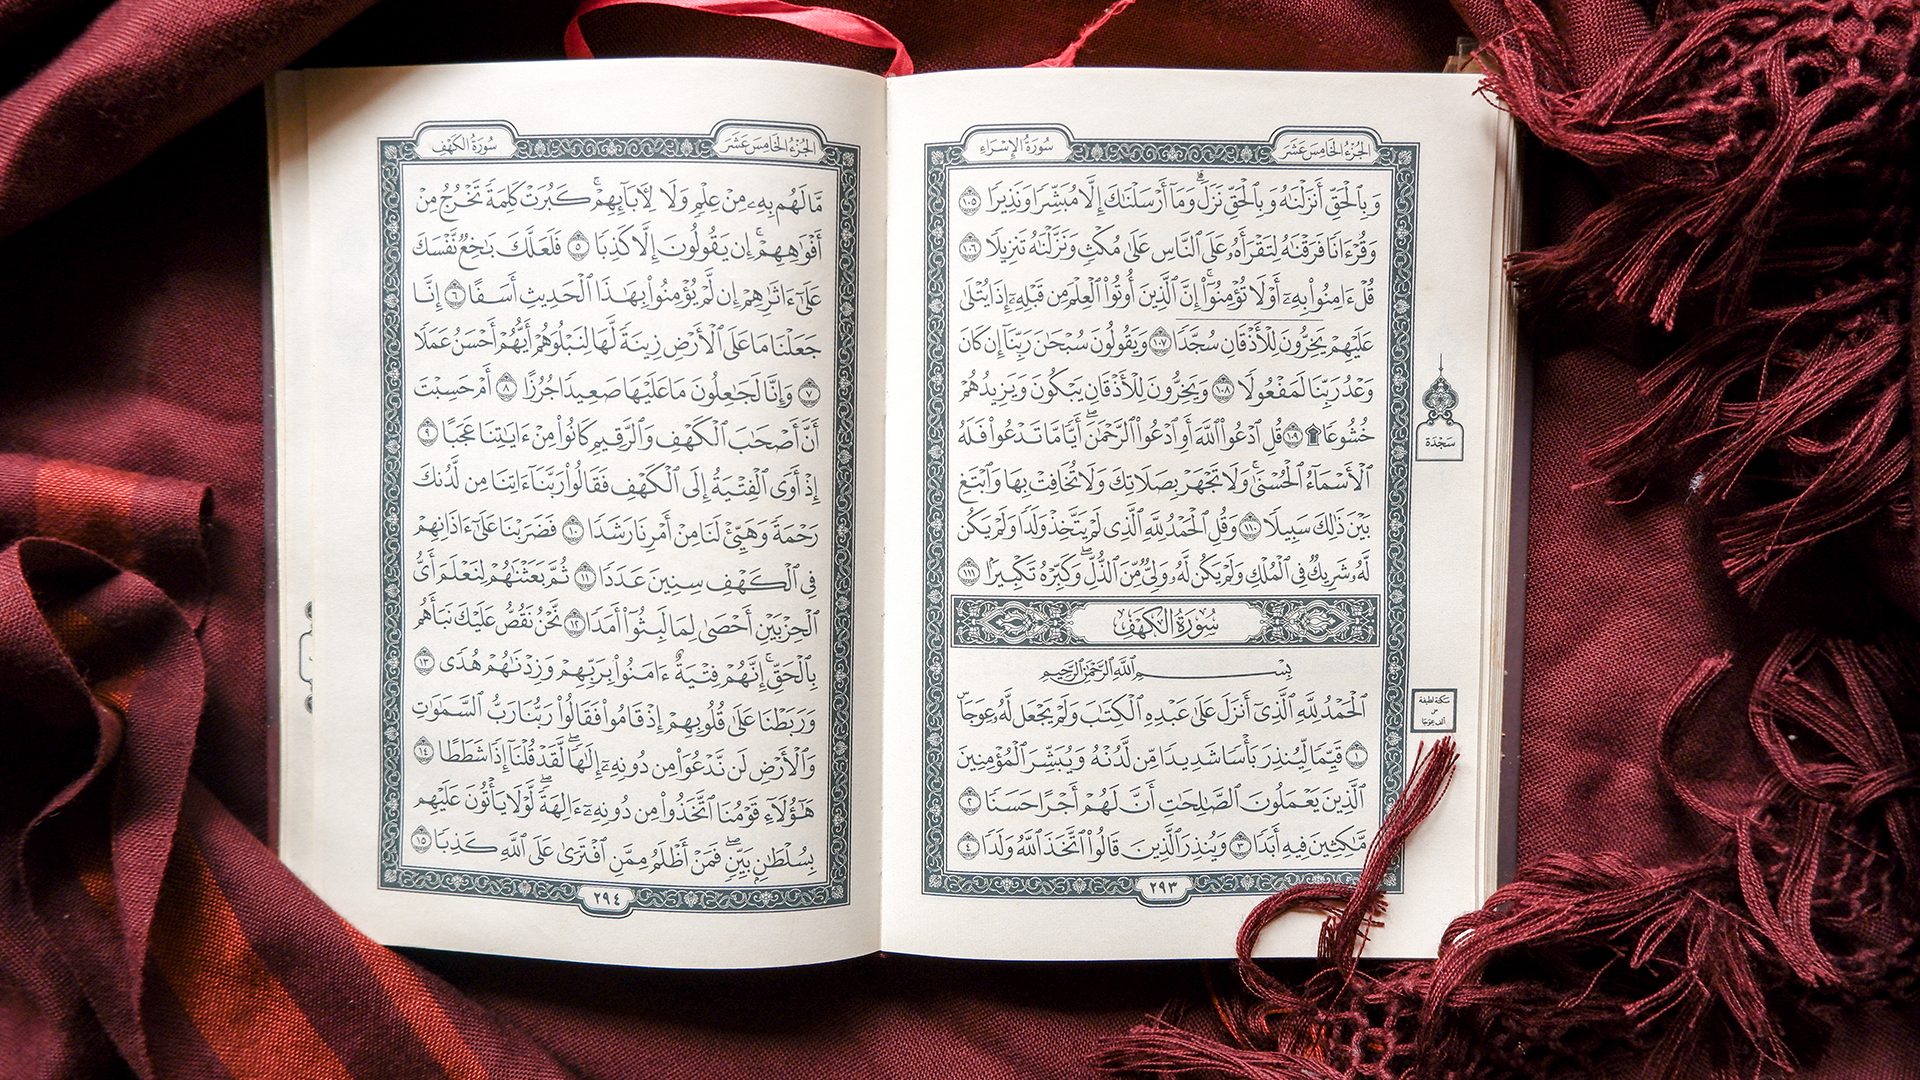 الجزء الخامس عشر
سورة الإسراء
وَبِٱلْحَقِّ أَنزَلْنَٰهُ وَبِٱلْحَقِّ نَزَلَ ۗ وَمَآ أَرْسَلْنَٰكَ إِلَّا مُبَشِّرًا وَنَذِيرًا ١٠٥
وَقُرْءَانًا فَرَقْنَٰهُ لِتَقْرَأَهُۥ عَلَى ٱلنَّاسِ عَلَىٰ مُكْثٍ وَنَزَّلْنَٰهُ تَنزِيلًا ١٠٦
قُلْ ءَامِنُوا۟ بِهِۦٓ أَوْ لَا تُؤْمِنُوٓا۟ ۚ إِنَّ ٱلَّذِينَ أُوتُوا۟ ٱلْعِلْمَ مِن قَبْلِهِۦٓ إِذَا يُتْلَىٰ
عَلَيْهِمْ يَخِرُّونَ لِلْأَذْقَانِ سُجَّدًا ١٠٧ وَيَقُولُونَ سُبْحَٰنَ رَبِّنَآ إِن كَانَ
وَعْدُ رَبِّنَا لَمَفْعُولًا ١٠٨ وَيَخِرُّونَ لِلْأَذْقَانِ يَبْكُونَ وَيَزِيدُهُمْ
خُشُوعًا ۩ ١٠٩ قُلِ ٱدْعُوا۟ ٱللَّهَ أَوِ ٱدْعُوا۟ ٱلرَّحْمَٰنَ ۖ أَيًّا مَّا تَدْعُوا۟ فَلَهُ
ٱلْأَسْمَآءُ ٱلْحُسْنَىٰ ۚ وَلَا تَجْهَرْ بِصَلَاتِكَ وَلَا تُخَافِتْ بِهَا وَٱبْتَغِ
بَيْنَ ذَٰلِكَ سَبِيلًا ١١٠ وَقُلِ ٱلْحَمْدُ لِلَّهِ ٱلَّذِى لَمْ يَتَّخِذْ وَلَدًا وَلَمْ يَكُن
لَّهُۥ شَرِيكٌ فِى ٱلْمُلْكِ وَلَمْ يَكُن لَّهُۥ وَلِىٌّ مِّنَ ٱلذُّلِّ ۖ وَكَبِّرْهُ تَكْبِيرًۢا ١١١
سورة الكهف
بِسْمِ ٱللَّهِ ٱلرَّحْمَٰنِ ٱلرَّحِيمِ
ٱلْحَمْدُ لِلَّهِ ٱلَّذِىٓ أَنزَلَ عَلَىٰ عَبْدِهِ ٱلْكِتَٰبَ وَلَمْ يَجْعَل لَّهُۥ عِوَجَاۜ
١ قَيِّمًا لِّيُنذِرَ بَأْسًا شَدِيدًا مِّن لَّدُنْهُ وَيُبَشِّرَ ٱلْمُؤْمِنِينَ
ٱلَّذِينَ يَعْمَلُونَ ٱلصَّٰلِحَٰتِ أَنَّ لَهُمْ أَجْرًا حَسَنًا ٢
مَّٰكِثِينَ فِيهِ أَبَدًا ٣ وَيُنذِرَ ٱلَّذِينَ قَالُوا۟ ٱتَّخَذَ ٱللَّهُ وَلَدًا ٤
٢٩٣
سجدة
سكتة لطيفة
س
ألف عوجا
الجزء الخامس عشر
سورة الكهف
مَّا لَهُم بِهِۦ مِنْ عِلْمٍ وَلَا لِءَابَآئِهِمْ ۚ كَبُرَتْ كَلِمَةً تَخْرُجُ مِنْ
أَفْوَٰهِهِمْ ۚ إِن يَقُولُونَ إِلَّا كَذِبًا ٥ فَلَعَلَّكَ بَٰخِعٌ نَّفْسَكَ
عَلَىٰٓ ءَاثَٰرِهِمْ إِن لَّمْ يُؤْمِنُوا۟ بِهَٰذَا ٱلْحَدِيثِ أَسَفًا ٦ إِنَّا
جَعَلْنَا مَا عَلَى ٱلْأَرْضِ زِينَةً لَّهَا لِنَبْلُوَهُمْ أَيُّهُمْ أَحْسَنُ عَمَلًا
٧ وَإِنَّا لَجَٰعِلُونَ مَا عَلَيْهَا صَعِيدًا جُرُزًا ٨ أَمْ حَسِبْتَ
أَنَّ أَصْحَٰبَ ٱلْكَهْفِ وَٱلرَّقِيمِ كَانُوا۟ مِنْ ءَايَٰتِنَا عَجَبًا ٩
إِذْ أَوَى ٱلْفِتْيَةُ إِلَى ٱلْكَهْفِ فَقَالُوا۟ رَبَّنَآ ءَاتِنَا مِن لَّدُنكَ
رَحْمَةً وَهَيِّئْ لَنَا مِنْ أَمْرِنَا رَشَدًا ١٠ فَضَرَبْنَا عَلَىٰٓ ءَاذَانِهِمْ
فِى ٱلْكَهْفِ سِنِينَ عَدَدًا ١١ ثُمَّ بَعَثْنَٰهُمْ لِنَعْلَمَ أَىُّ
ٱلْحِزْبَيْنِ أَحْصَىٰ لِمَا لَبِثُوٓا۟ أَمَدًا ١٢ نَّحْنُ نَقُصُّ عَلَيْكَ نَبَأَهُم
بِٱلْحَقِّ ۚ إِنَّهُمْ فِتْيَةٌ ءَامَنُوا۟ بِرَبِّهِمْ وَزِدْنَٰهُمْ هُدًى ١٣
وَرَبَطْنَا عَلَىٰ قُلُوبِهِمْ إِذْ قَامُوا۟ فَقَالُوا۟ رَبُّنَا رَبُّ ٱلسَّمَٰوَٰتِ
وَٱلْأَرْضِ لَن نَّدْعُوَا۟ مِن دُونِهِۦٓ إِلَٰهًا ۖ لَّقَدْ قُلْنَآ إِذًا شَطَطًا ١٤
هَٰٓؤُلَآءِ قَوْمُنَا ٱتَّخَذُوا۟ مِن دُونِهِۦٓ ءَالِهَةً ۖ لَّوْلَا يَأْتُونَ عَلَيْهِم
بِسُلْطَٰنٍۭ بَيِّنٍ ۖ فَمَنْ أَظْلَمُ مِمَّنِ ٱفْتَرَىٰ عَلَى ٱللَّهِ كَذِبًا ١٥
٢٩٤